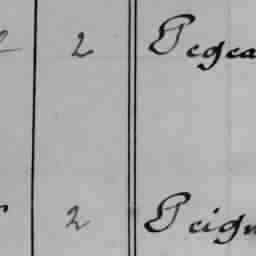 2 Pegea
2 Peign